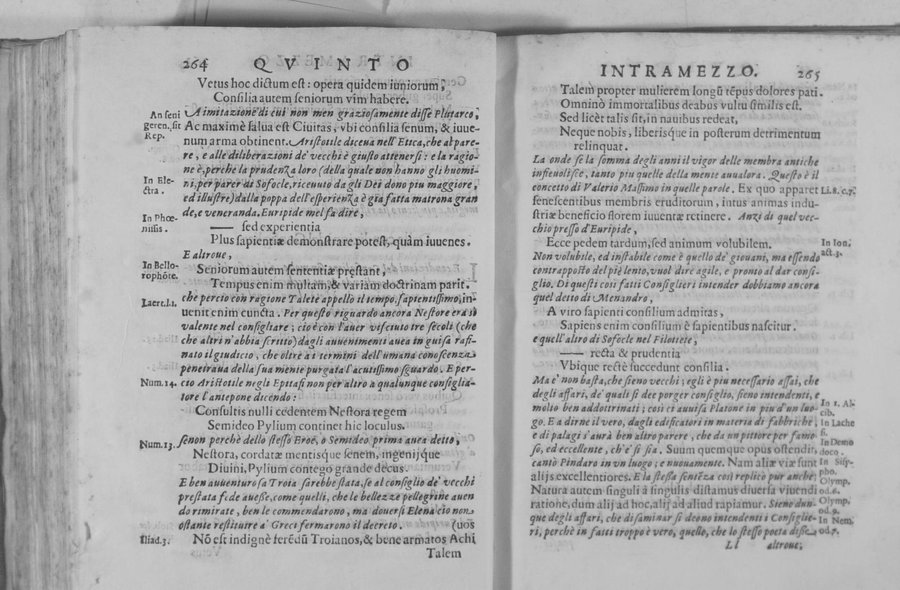 264 QVINTO
Vetus hoc dictum est: opera quidem iuniorum,
Consilia autem seniorum vim habere.
An seni
geren. sit
Rep.
A imitazione di cui non men graziosamente disse Plutarco,
Ac maximè salua est Ciuitas, vbi consilia senum, & iuue-
num arma obtinent. Aristotile diceua nell'Etica, che al pare-
re, e alle diliberazioni de' vecchi è giusto attenersi: e la ragio-
ne è, perche la prudenza loro (della quale non hanno gli huomi-
In Ele-
ctra.
ni, per parer di Sofocle, riceuuto da gli Dei dono piu maggiore,
ed illustre) dalla poppa dell'esperienza è gia fatta matrona gran
de, e veneranda. Euripide mel fa dire,
In Phœ-
nissis.
—— sed experientia
Plus sapientiæ demonstrare potest, quàm iuuenes.
E altroue,
In Bello-
rophōte.
Seniorum autem sententiæ præstant,
Tempus enim multam, & variam doctrinam parit.
Laert. l. 1.
che percio con ragione Talete appello il tempo. sapientissimo, in-
uenit enim cuncta. Per questo riguardo ancora Nestore era sì
valente nel consigliare; cioè con l'auer visciuto tre secoli (che
che altri n'abbia scritto) dagli auuenimenti auea in guisa raffi-
nato il giudicio, che oltre a i termini dell'umana conoscenza
penetraua della sua mente purgata l'acutissimo sguardo. E per-
Num. 14.
cio Aristotile negli Epitafi non per altro a qualunque consiglia-
tore l'antepone dicendo:
Consultis nulli cedentem Nestora regem
Semideo Pylium continet hic loculus.
Num. 13.
se non perchè dello stesso Eroe, o Semideo prima auea detto,
Nestora, cordatæ mentisque senem, ingenijsque
Diuini, Pylium contego grande decus.
E ben auuenturosa Troia sarebbe stata, se al consiglio de' vecchi
prestata fede auesse, come quelli, che le bellezze pellegrine auen
do rimirate, ben le commendarono, ma douersi Elena cio non
ostante restituire a' Greci fermarono il decreto. (uos
Iliad. 3.
Nō est indignè ferēdū Troianos, & bene armatos Achi
Talem
INTRAMEZZO. 265
Talem propter mulierem longū tēpus dolores pati.
Omninò immortalibus deabus vultu similis est.
Sed licèt talis sit, in nauibus redeat,
Neque nobis, liberisque in posterum detrimentum
relinquat.
La onde se la somma degli anni il vigor delle membra antiche
infieuolisce, tanto piu quelle della mente auualora. Questo è il
concetto di Valerio Massimo in quelle parole. Ex quo apparet
Li. 8. c. 7.
senescentibus membris eruditorum, intus animas indu-
striæ beneficio florem iuuentæ retinere. Anzi di quel vec-
chio presso d'Euripide,
Ecce pedem tardum, sed animum volubilem.
In Ion,
act. 3.
Non volubile, ed instabile come è quello de' giouani, ma essendo
contrapposto del piè lento, vuol dire agile, e pronto al dar consi-
glio. Di questi cosi fatti Consiglieri intender dobbiamo ancora
quel detto di Menandro,
A viro sapienti consilium admitas,
Sapiens enim consilium è sapientibus nascitur.
e quell'altro di Sofocle nel Filottete,
—— recta & prudentia
Vbique rectè succedunt consilia.
Ma e' non basta, che sieno vecchi; egli è piu necessario assai, che
degli affari, de' quali si dee porger consiglio, sieno intendenti, e
In 1. Al-
cib.
molto ben addottrinati; cosi ci auuisa Platone in piu d'un luo-
go. E a dirne il vero, dagli edificatori in materia di fabbriche,
In Lache
e di palagi s'aurà ben altro parere, che da un pittore per famo-
In Demo
doco.
so, ed eccellente, ch'e' si sia. Suum quemque opus ostendit,
cantò Pindaro in vn luogo, e nuouamente. Nam aliæ viæ sunt
In Sisy-
pho.
alijs excellentiores. E la stessa sentēza cosi replicò pur anche,
Olymp.
od. 6.
Natura autem singuli à singulis distamus diuersa viuendi
ratione, dum alij ad hoc, alij ad aliud rapiamur. Siene dun-
Olymp.
od. 9.
que degli affari, che disaminar si deono intendenti i Consiglie-
In Nem.
od. 7.
ri, perchè in fatti troppo è vero, quello, che lo stesso poeta disse
Ll altroue,